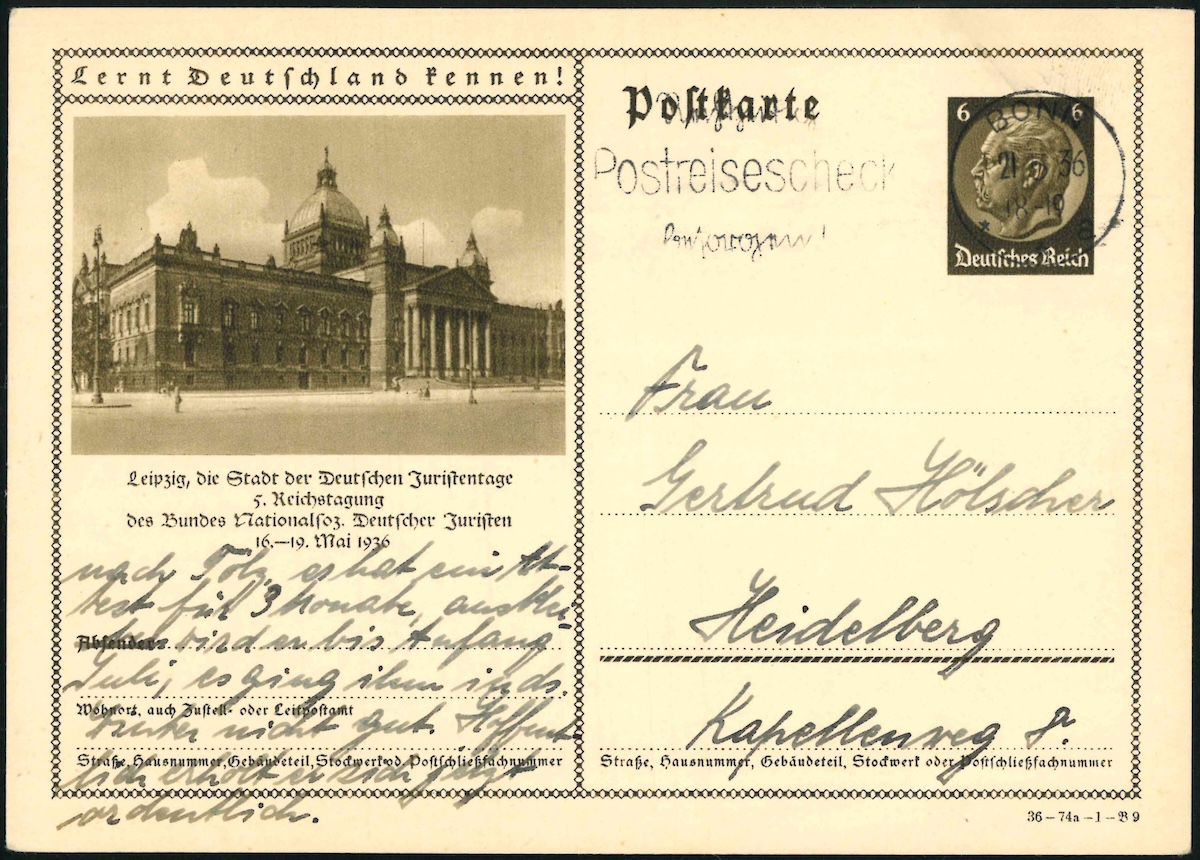 Lernt Deutschland kennen!
Leipzig, die Stadt der Deutschen Juristentage
5. Reichstagung
des Bundes Nationalsoz. Deutscher Juristen
16.—19. Mai 1936
nach Tölz, es hat ein At-
test für 3 Monate,
Absender:
wird er bis Anfang
Juli, es ging ihm
Wohnort, auch Zustell- oder Leitpostamt
nicht gut. Hoffent-
Straße, Hausnummer, Gebäudeteil, Stockwerk od. Postschließfachnummer
lich erholt er sich jetzt
ordentlich.
Postkarte
Postreisescheck
6 6
BONN
21 36
18-19
* 8
Deutsches Reich
Frau
Gertrud Hölscher
Heidelberg
Kapellenweg
Straße, Hausnummer, Gebäudeteil, Stockwerk oder Postschließfachnummer
36 – 74a – 1 – B 9